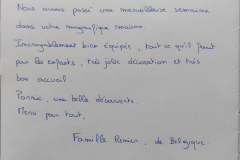 Nous avons passé une merveilleuse semaine
dans votre magnifique maison.
Incroyablement bien équipée, tout ce qu'il faut
pour les enfants, très jolie décoration et très
bon accueil.
Pornic, une belle découverte.
Merci pour tout.
Famille Remier, de Belgique.